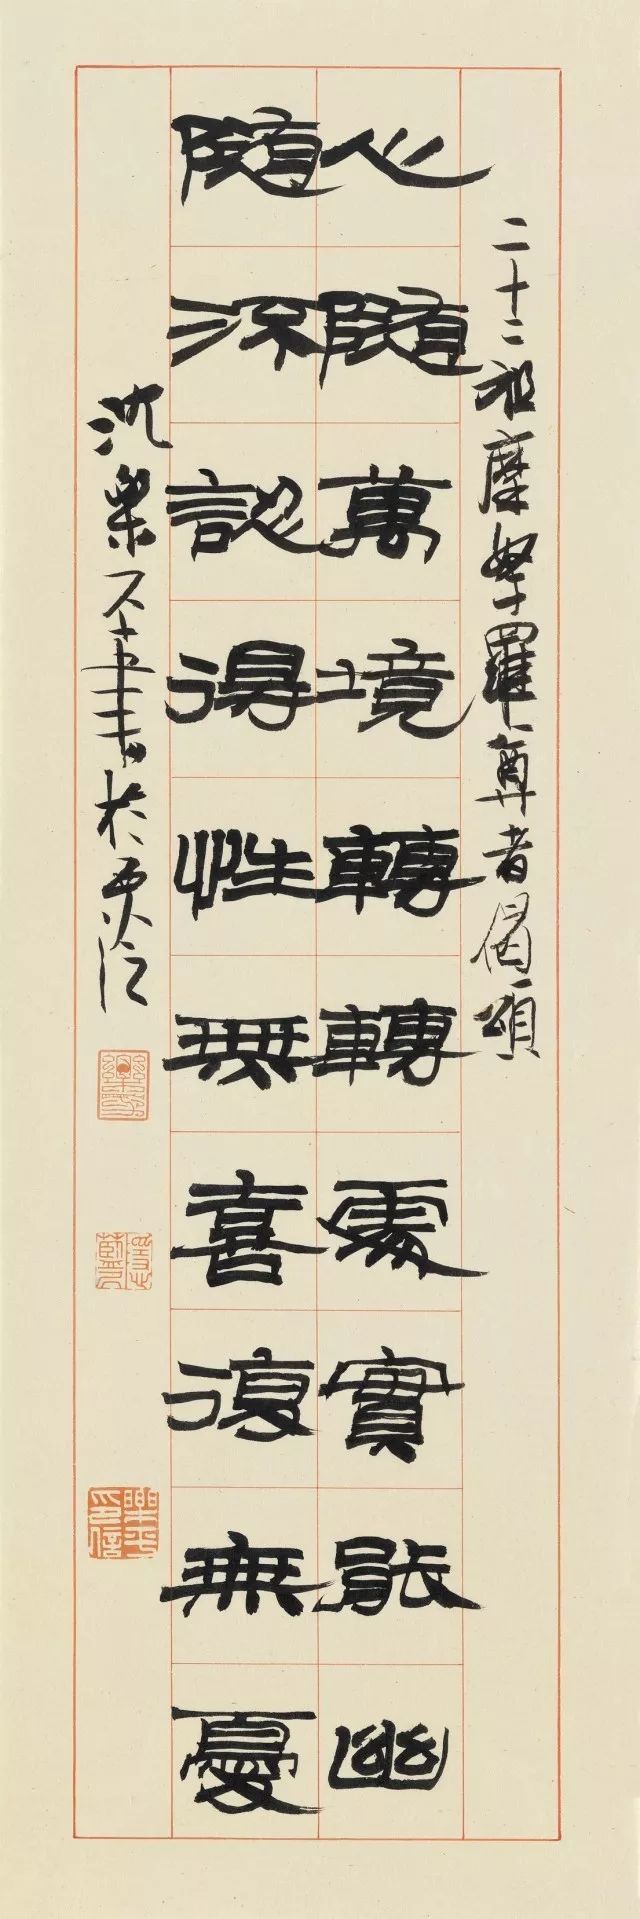 二十二祖摩拏羅尊者偈頌
心隨萬境轉轉處實能幽
隨流認得性無喜復無憂
沈樂平書於
樂平印信